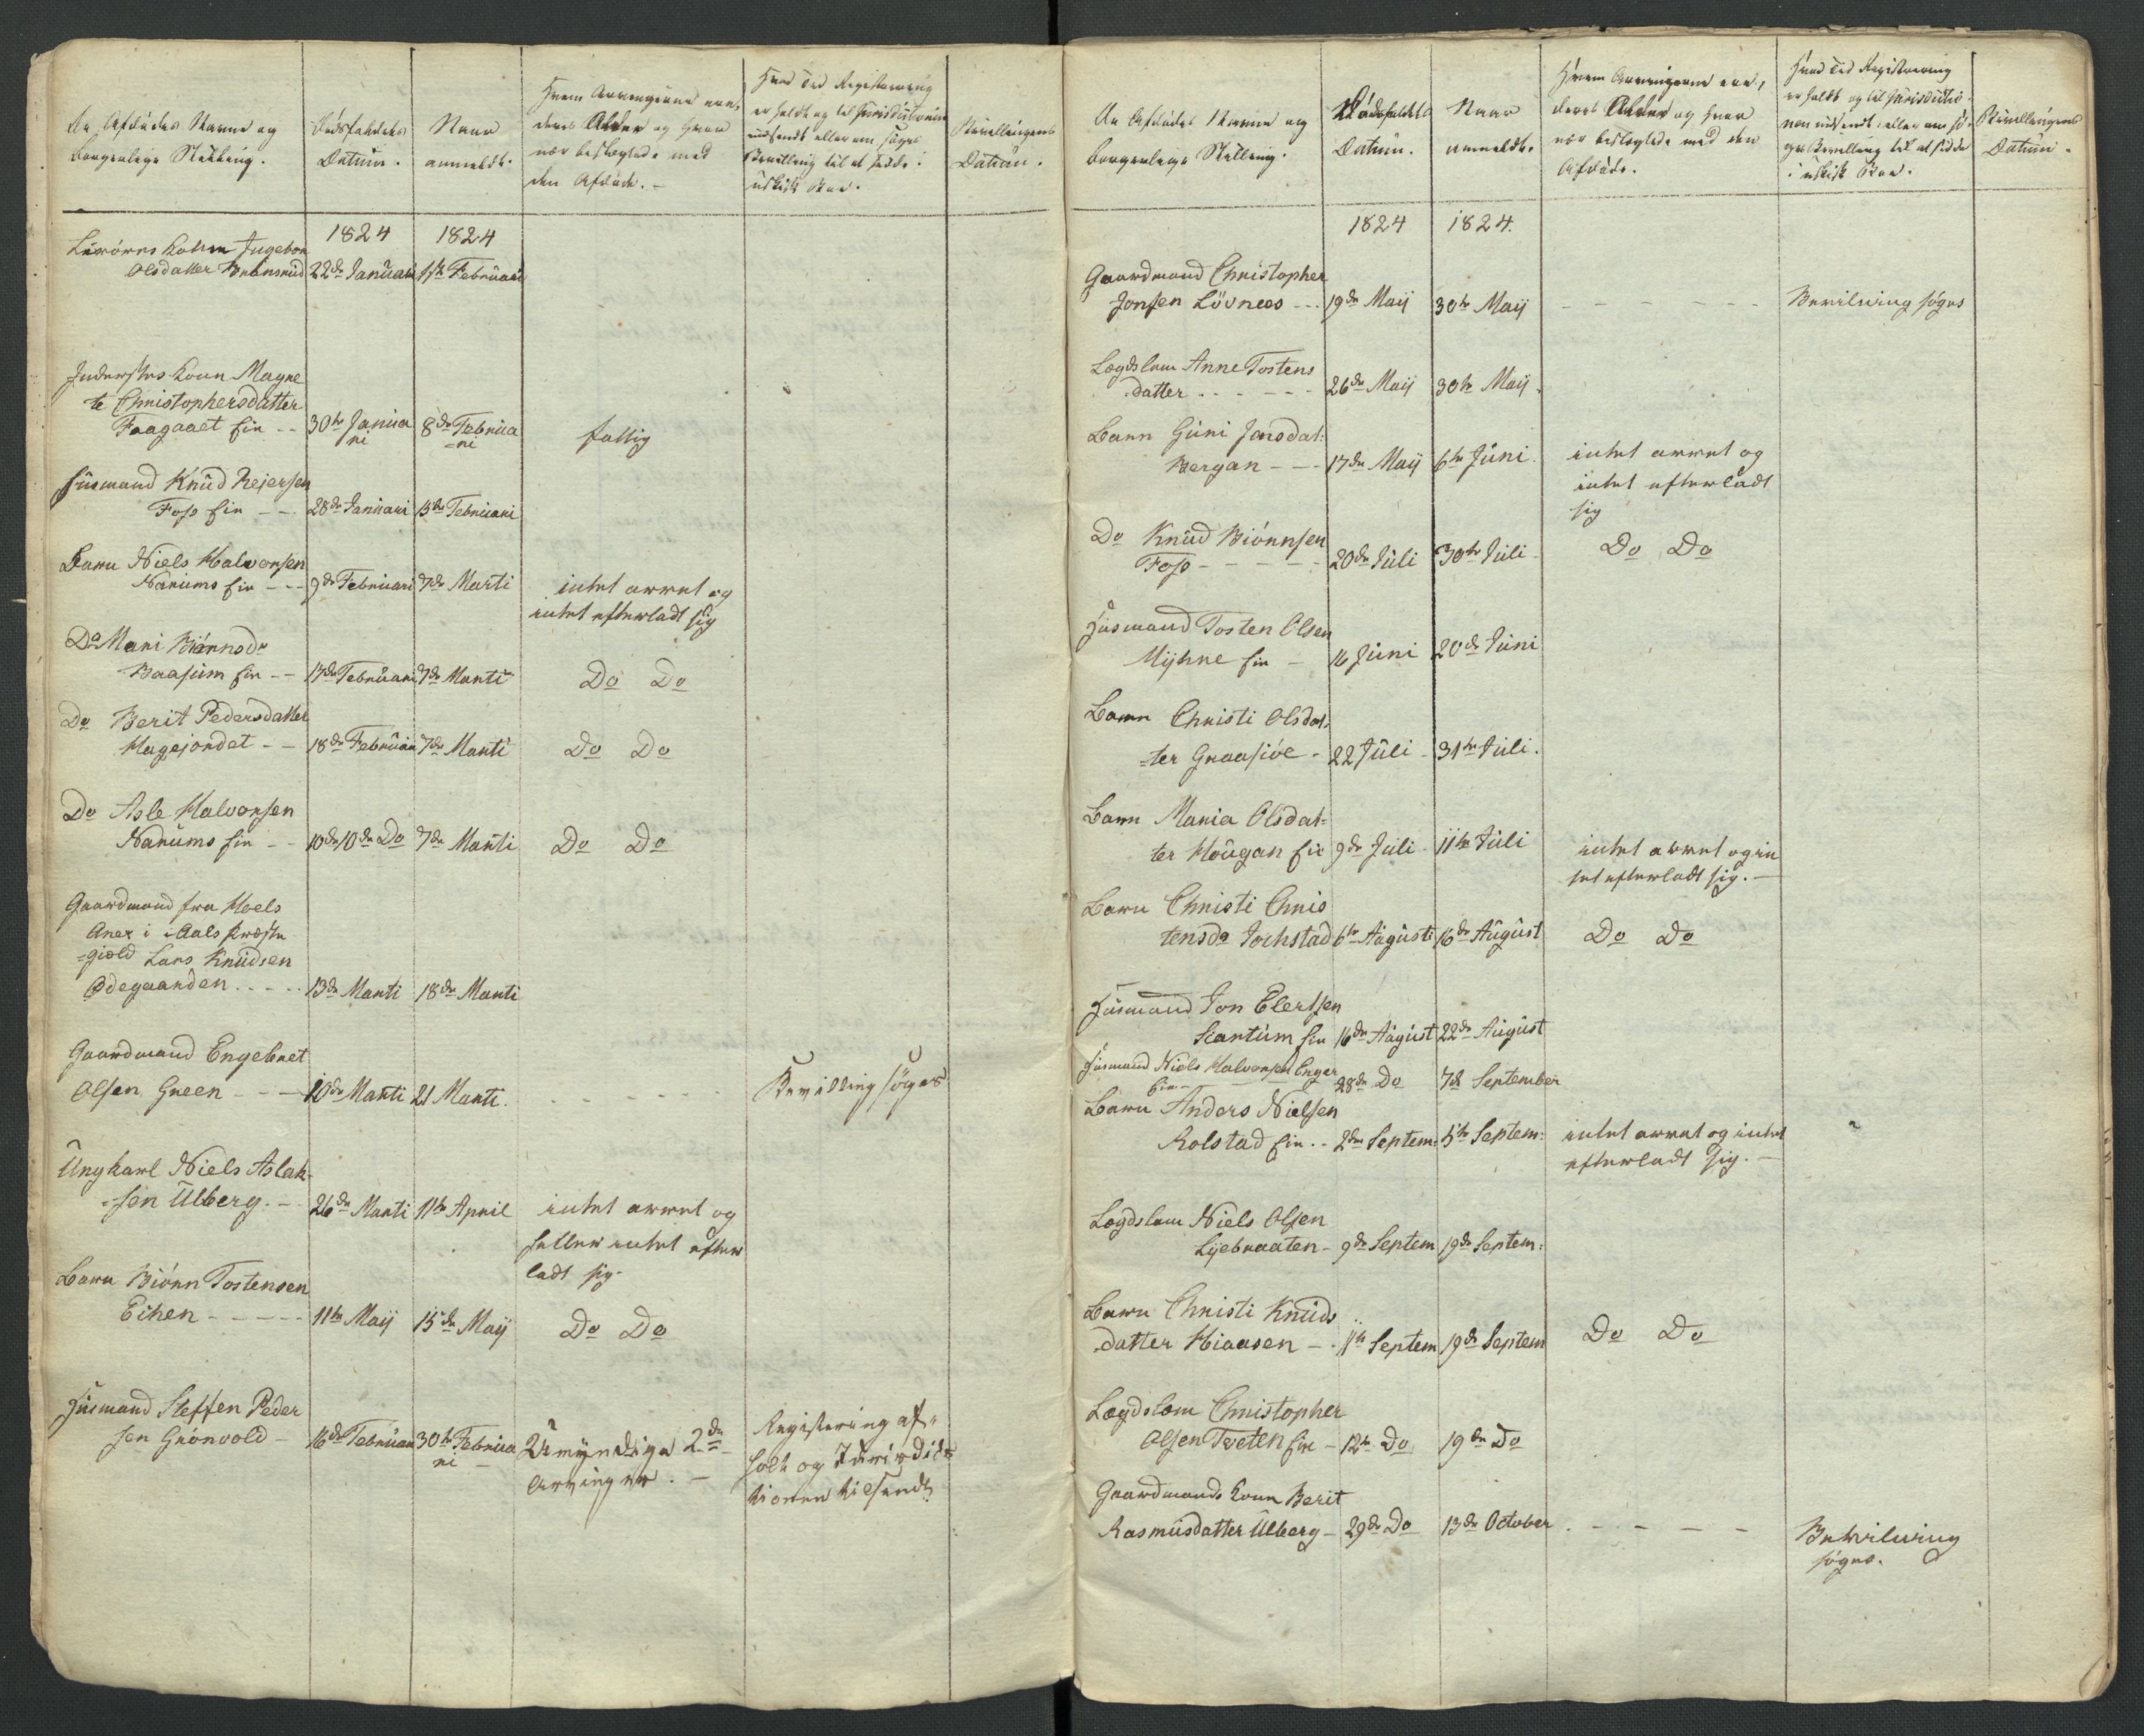 De Afdødes Navne og
borgerlige Stilling.
Dødsfaldets
Datum.
Naar
anmeldt.
Hvem Arvingerne ere,
deres Alder og hvor
nær beslegtede med
den Afdøde.
Hvad Tid Registrering
er holdt og til Jurisdictionen
indsendt eller om søges
Bevilling til at sidde i
uskift Boe.
Bevillingens
Datum.
1824 1824
Kone Ingebor
Olsdatter 22de Januari 1ste Februari
Inderstes Kone Magne
te Christophersdatter
Faagaaet Eie -- 30te Janua 8de Februa fattig
ri -ri
Huusmand Knud Reiersen
Foss Eie -- 28de Januari 15de Februari
Barn Niels Halvorsen
Narums Eie --- 9de Februari 7de Marti intet arvet og
intet efterladt sig
Do Mari Biørnsdr
Baasum Eie -- 17de Februari 7de Marti Do Do
Do Berit Pedersdatter
Hagejordet -- 18de Februari 7de Marti Do Do
Do Asle Halvorsen
Narums Eie -- 10de 10de Do 7de Marti Do Do
Gaardmand fra Hoels
Anex i Aals Præste
=giæld Lars Knudsen
Ødegaarden..... 13de Marti 18de Marti
Gaardmand Engebret
Olsen Green --- 10de Marti 21 Marti. - - - - - - Bevilling søges
Ungkarl Niels Aslak-
=sen Ulberg. - 26de Marti 11te April intet arvet og
heller intet efter
ladt sig.
Barn Biørn Tostensen
Eihen ----- 11te Maij 15de Maij Do Do
Huusmand Steffen Peder
sen Grønvold - 16de Februari 30te Februa Umyndige 2de Registering af-
ri Arvinger. - holt og Jurisdic
tionen tilsendt
De Afdødes Navne og
borgerlige Stilling.
Dødsfaldets
Datum.
Naar
anmeldt.
Hvem Arvingerne ere,
deres Alder og hvor
nær beslegtede med den
Afdøde.
Hvad Tid Registrering
er holdt og til Jurisdictio-
nen indsendt eller om sø-
ges Bevilling til at sidde
i uskift Boe.
Bevillingens
Datum.
1824 1824.
Gaardmand Christopher
Jonsen Løvnees --- 19de Maij 30te Maij - - - - - - Bevilning søges
Lægdslem Anne Tostens
datter. - - - - - 26de Maij 30te Maij.
Barn Guri Jonsdat:
Bergan --- 17de Maij 6te Juni. intet arvet og
intet efterladt
sig
Do Knud Biørnsen
Foss - - - - - 20de Juli 30te Juli. Do Do
Huusmand Tosten Olsen
Mÿhre Eie - 16 Juni 20de Juni
Barn Christi Olsdat-
=ter Graasiøe - 22 Juli - 31te Juli.
Barn Maria Olsdat=
ter Hougan Eie 9de Juli - 11te Juli intet arvet og in
tet efterladt sig. -
Barn Christi Chris
tensdr Jochstad 6te Augusti 16de August Do Do
Huusmand Jon Elertsen
Scartum Eie 16de August 22de August
Huusmand Niels Halvorsen Enger
Eie - 28de Do 7de September
Barn Anders Nielsen
Rolstad Eie.. 2den Septem: 5te Septem: intet arvet og intet
efterladt sig. -
Lægdslem Niels Olsen
Lÿebraaten - 9de Septem 19de Septem:
Barn Christi Knuds
datter Hiaasen -. 11te Septem 19de Septem Do Do
Lægdslem Christopher
Olsen Tveten Eie - 12te Do 19de Do
Gaardmands Kone Berit
Rasmusdatter Ulberg - 29de Do 13de October. - - - - - Bevilning
søges.